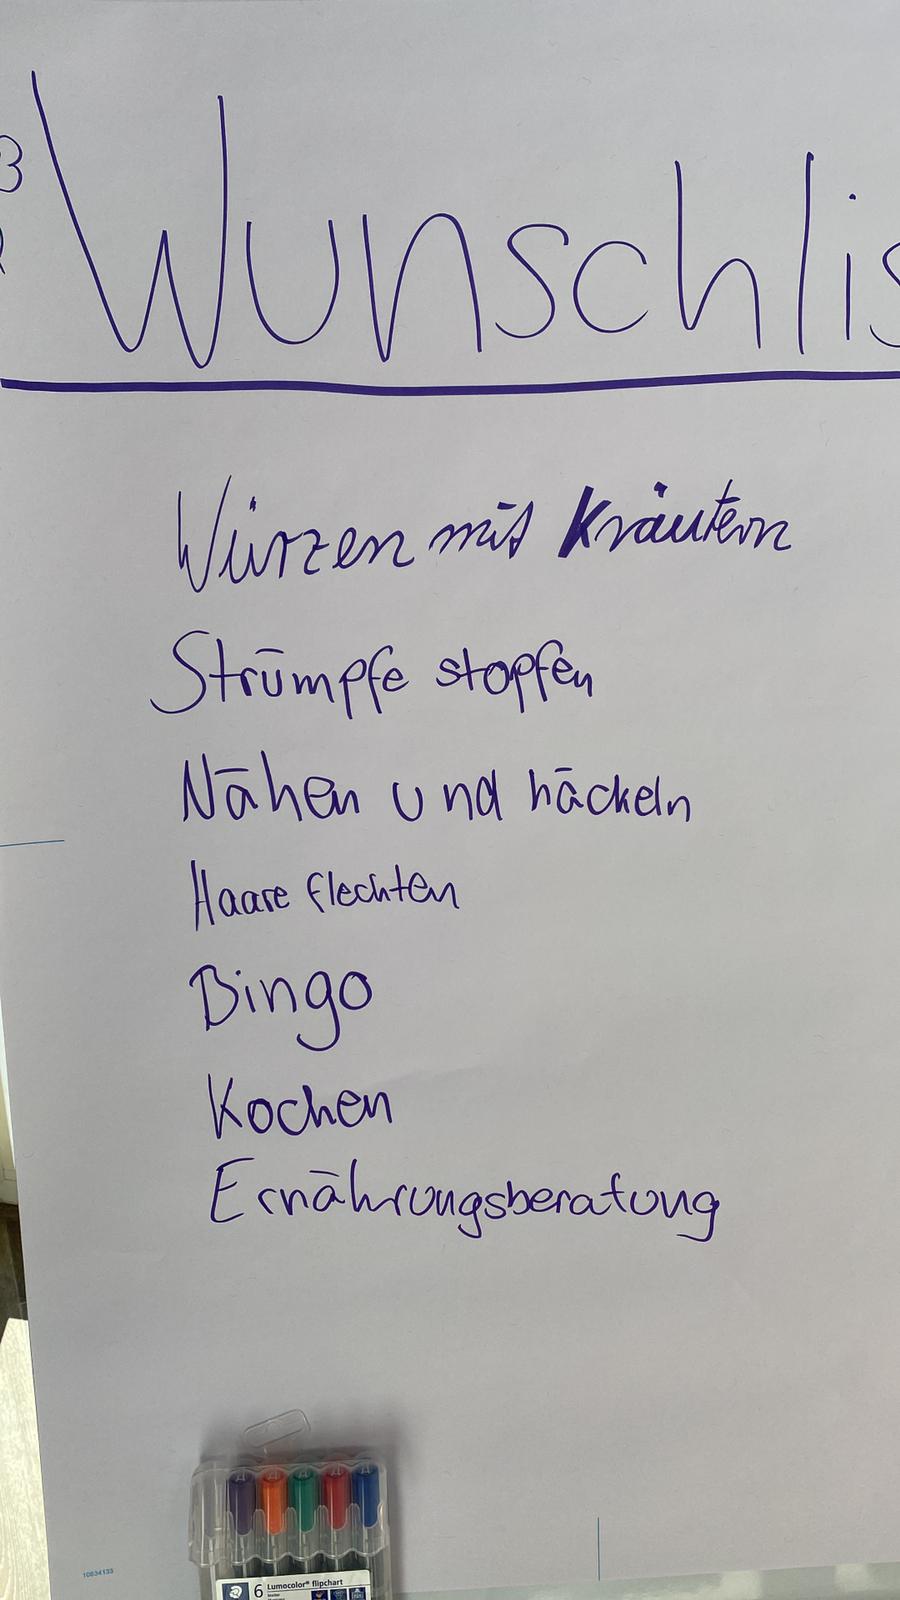 Wunschlis
Würzen mit Kräutern
Strümpfe stopfen
Nähen und häckeln
Haare flechten
Bingo
Kochen
Ernährungsberatung
10634133
6 Lumocolor® flipchart